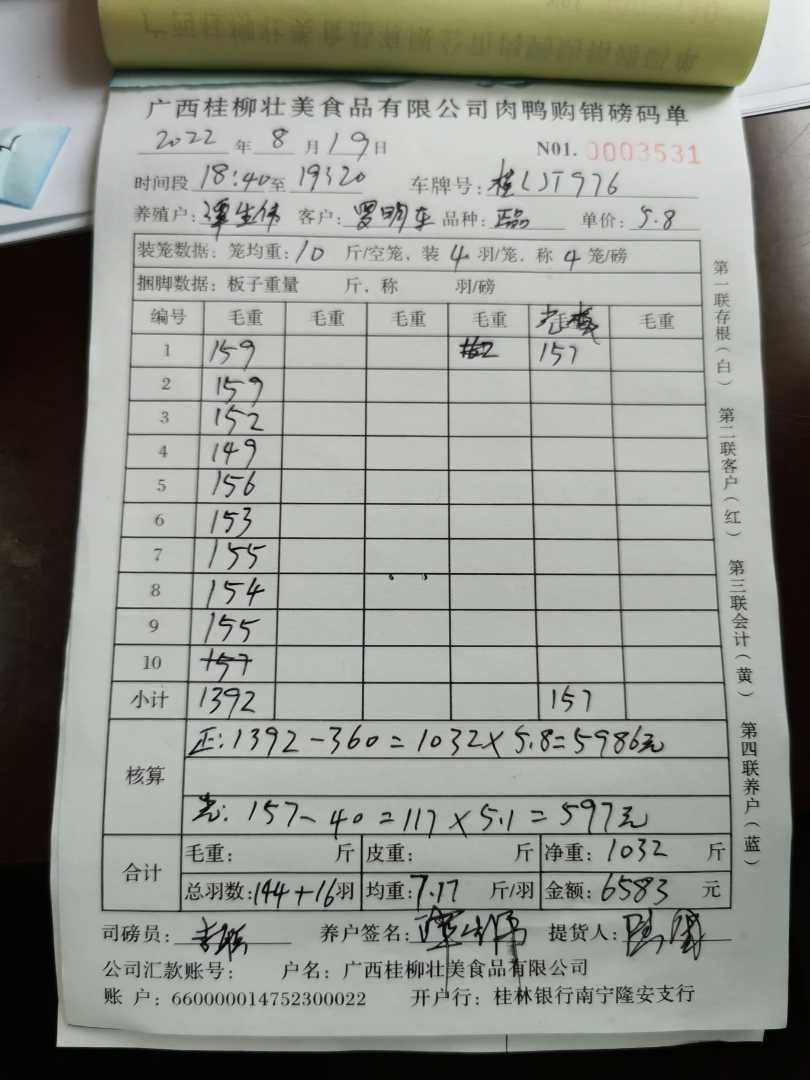 广西桂柳壮美食品有限公司肉鸭购销磅码单
2022 年 8 月 19 日 N01. 0003531
时间段 18:40 至 19320 车牌号: 桂LJT976
养殖户: 谭生伟 客户: 罗明东 品种: 正品 单价: 5.8
装笼数据: 笼均重: 10 斤/空笼, 装 4 羽/笼, 称 4 笼/磅
捆脚数据: 板子重量 斤, 称 羽/磅
编号 毛重 毛重 毛重 毛重 毛重 毛重
1 159 157
2 159
3 152
4 149
5 156
6 153
7 155
8 154
9 155
10 157
小计 1392 157
核算
正: 1392-360=1032×5.8=5986元
光: 157-40=117×5.1=597元
合计
毛重: 斤 皮重: 斤 净重: 1032 斤
总羽数: 144+16 羽 均重: 7.17 斤/羽 金额: 6583 元
司磅员: 养户签名: 谭生伟 提货人:
公司汇款账号: 户名: 广西桂柳壮美食品有限公司
账 户: 660000014752300022 开户行: 桂林银行南宁隆安支行
第一联存根(白) 第二联客户(红) 第三联会计(黄) 第四联养户(蓝)